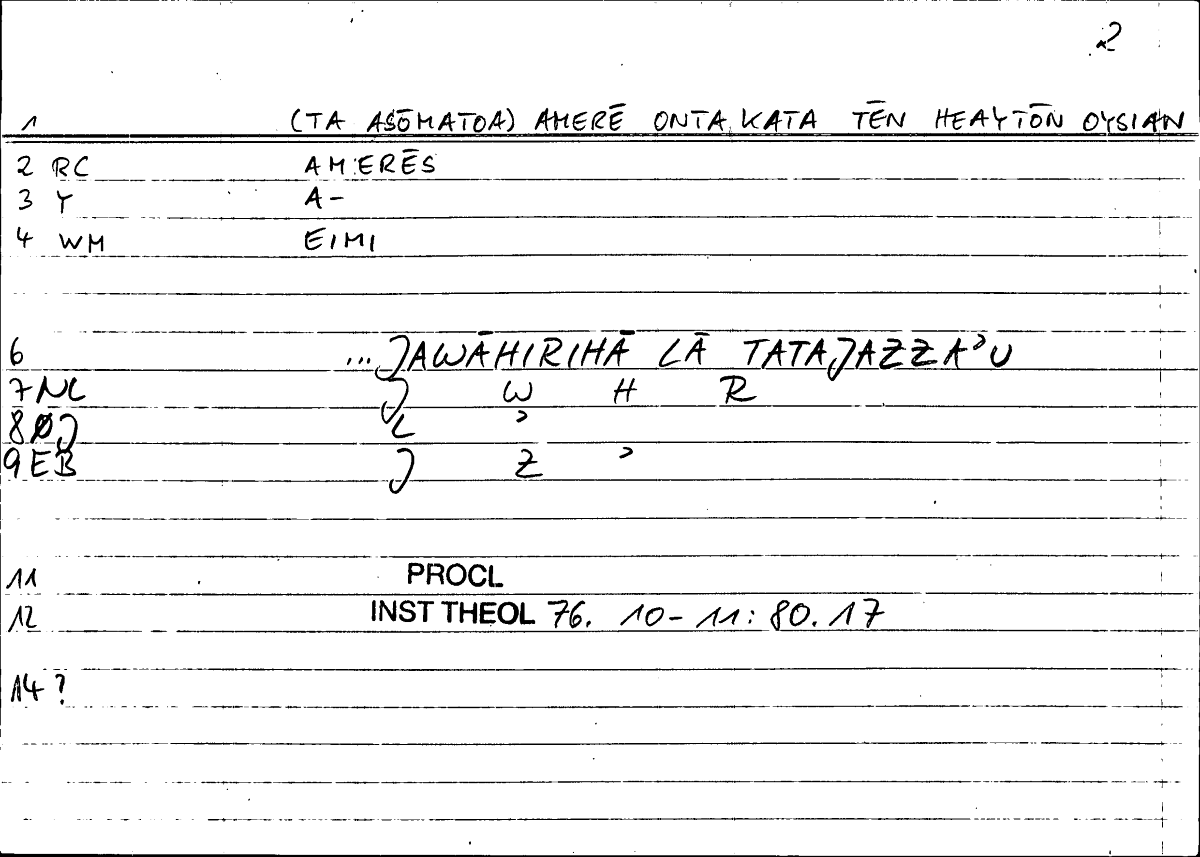 2
1 (TA ASŌMATOA) AMERĒ ONTA KATA TĒN HEAYTŌN OYSIAN
2 RC AMERĒS
3 Y A-
4 WM EIMI
6 ...JAWĀHIRIHĀ LĀ TATAJAZZAʾU
7 NL J W H R
8 ØJ L ʾ
9 EB J Z ʾ
11 PROCL
12 INST THEOL 76. 10-11: 80.17
14 ?